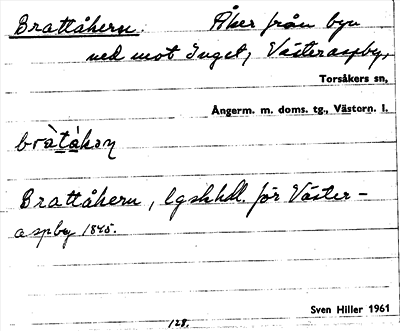 Brattåkern. Åker från byn
ned mot Inget, Västeraspby,
Torsåkers sn,
Ångerm. m. doms. tg., Västern. l.
bràtákoṇ
Brattåkern, lgskhdl. för Väster-
aspby 1845.
128.
Sven Hiller 1961